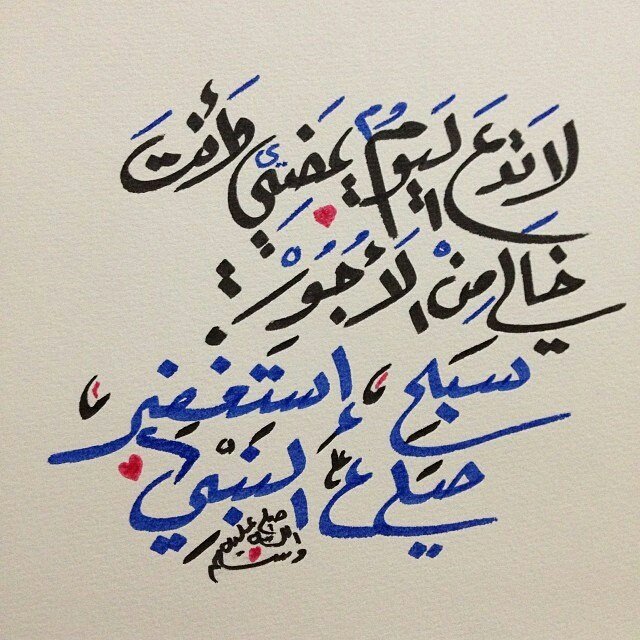 لا تدع اليومُ يمضي وأنتَ
خالي مِنْ الأجُورْ :
سبح ، إستغفر ،
صلي ع النبي
صلى الله عليه وسلم